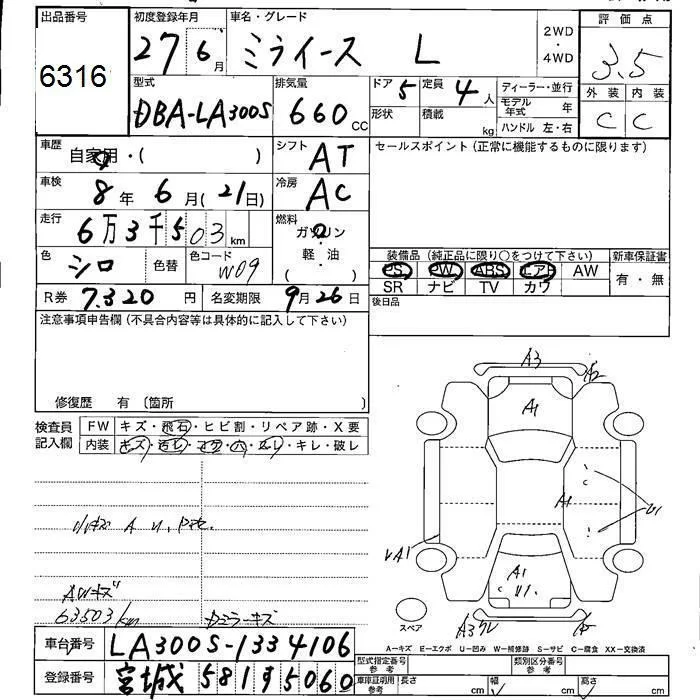 出品番号
6316
初度登録年月
27 6月
車名・グレード
ミライース L
2WD
・
4WD
評価点
3.5
外装 内装
C C
型式
DBA-LA300S
排気量
660 CC
ドア 5
定員 4人
形状
積載 kg
ディーラー・並行
モデル年式 年
ハンドル 左・右
車歴
自家用・( )
シフト AT
セールスポイント(正常に機能するものに限ります)
車検
8年 6月(21日)
冷房 AC
走行
6万3千503km
燃料
ガソリン
軽・油
( )
色 シロ
色替
色コード W09
装備品(純正品に限り○をつけて下さい)
PS PW ABS エアB AW
SR ナビ TV カワ
新車保証書
有・無
R券 7.320円
名変期限 9月26日
後日品
注意事項申告欄(不具合内容等は具体的に記入して下さい)
修復歴 有〔箇所 〕
検査員記入欄
FW キズ・飛石・ヒビ割・リペア跡・X要
内装 キズ・汚レ・コゲ・穴・スレ・キレ・破レ
A3
A2
A1
A1
U1
A1
A1
A3
スペア
AWキズ
63503km
ドミラーキズ
A-キズ E-エクボ U-凹み W-補修跡 S-サビ C-腐食 XX-交換済
車台番号 LA300S-1334106
登録番号 宮城 581 す 5060
型式指定番号 参考
類別区分番号 参考
車庫証明用 参考 長さ cm 幅 cm 高さ cm